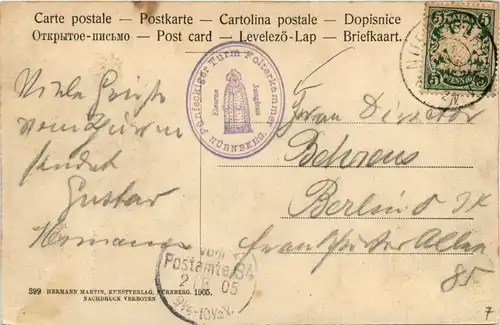 Carte postale — Postkarte — Cartolina postale — Dopisnice
Открытое-письмо — Post card — Levelező-Lap — Briefkaart.
Fünfeckiger Turm Folterkammer
Eiserne Jungfrau
NÜRNBERG.
5
5
Viele Grüße
vom Turm
sendet
Gustav
Frau Director
Behrens
Berlin
Frankfurter Allee
85
vom
Postamte
05
399 HERMANN MARTIN, KUNSTVERLAG, NÜRNBERG. 1905.
NACHDRUCK VERBOTEN
7